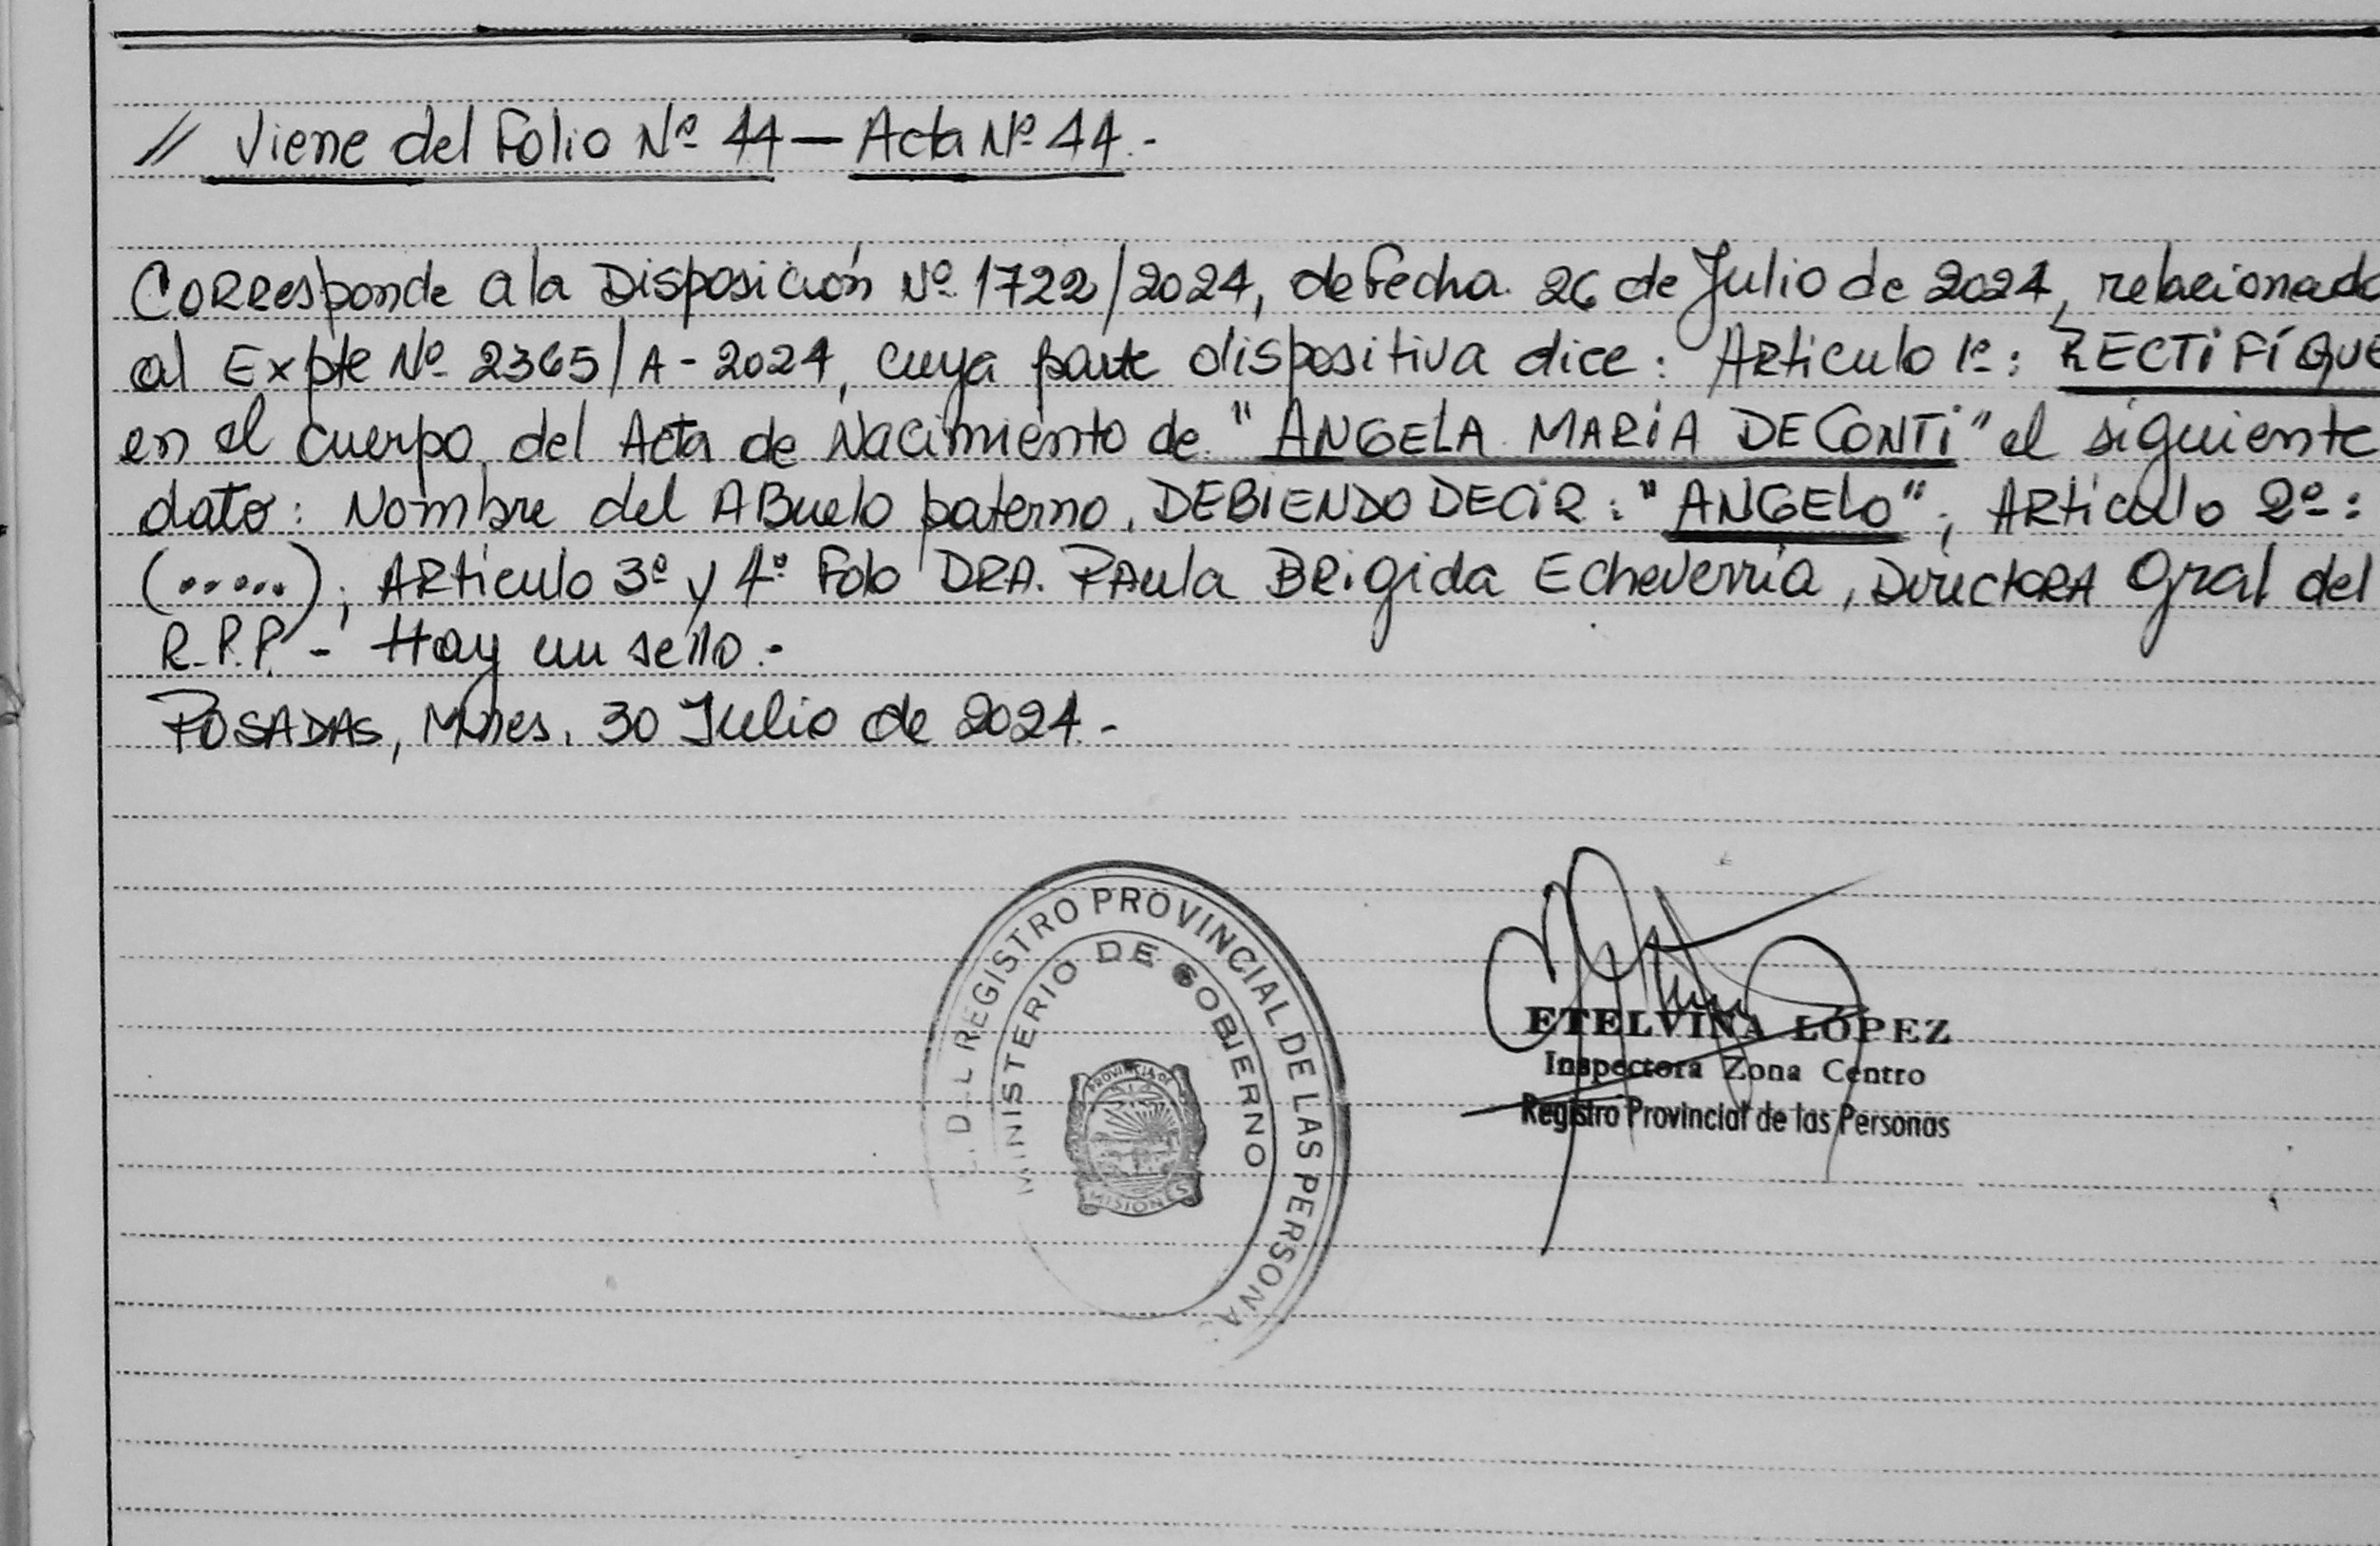 // Viene del Folio Nº 44 — Acta Nº 44.-
Corresponde a la Disposición Nº 1722/2024, de fecha 26 de Julio de 2024, relacionado
al Expte Nº 2365/A-2024, cuya parte dispositiva dice: Articulo 1º: RECTIFÍQUE
en el cuerpo del Acta de Nacimiento de "ANGELA MARIA DECONTI" el siguiente
dato: Nombre del Abuelo paterno, DEBIENDO DECIR: "ANGELO"; Articulo 2º:
(.....); Articulo 3º y 4º Fdo DRA. Paula Brigida Echeverría, Directora Gral del
R.P.P. - Hay un sello.-
POSADAS, Mnes. 30 Julio de 2024.-
REGISTRO PROVINCIAL DE LAS PERSONA
MINISTERIO DE GOBIERNO
PROVINCIA DE
MISIONES
ETELVINA LÓPEZ
Inspectora Zona Centro
Registro Provincial de las Personas